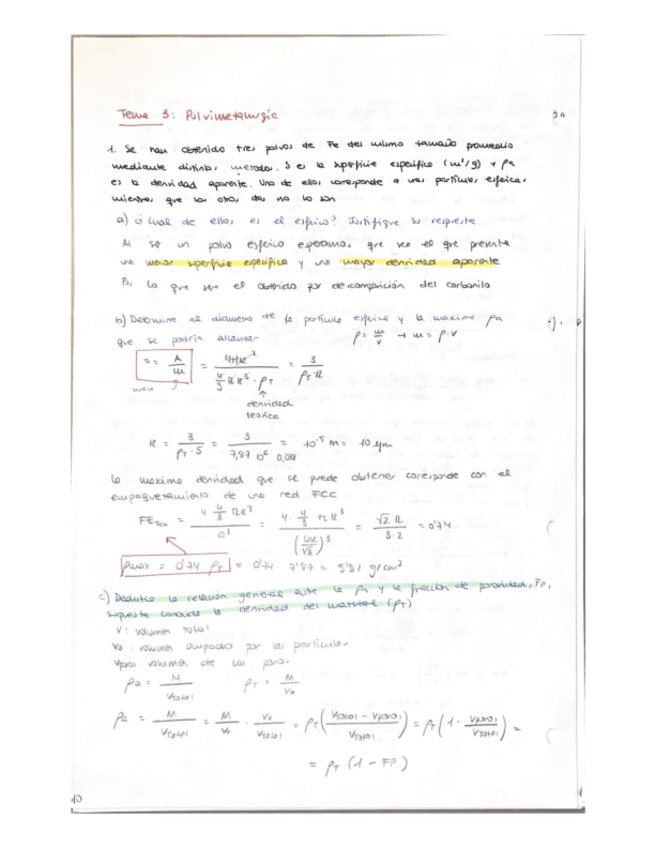 Tema 3: Pulvimetalurgia
1. Se han obtenido tres polvos de Fe del mismo tamaño promedio
mediante distintos métodos. S es la superficie específica (m²/g) y ρa
es la densidad aparente. Uno de ellos corresponde a unas partículas esféricas
mientras que los otros dos no lo son
a) ¿Cuál de ellos es el esférico? Justifique su respuesta
Al ser un polvo esférico esperamos que sea el que presente
una menor superficie específica y una mayor densidad aparente
B, lo que sea el obtenido por descomposición del carbonilo
b) Determine el diámetro de la partícula esférica y la máxima ρa
que se podría alcanzar
ρ = m/V → m = ρ·V
S = A/m = 4πR² / (4/3 πR³ · ρT) = 3 / (ρT·R)
densidad
teórica
R = 3 / (ρT · S) = 3 / (7,87 10⁶ 0,038) = 10⁻⁵ m = 10 μm
La máxima densidad que se puede obtener corresponde con el
empaquetamiento de una red FCC
= 4 4/3 πR³ / a³ = 4 · 4/3 πR³ / (4R/√2)³ = √2 π / 3·2 = 0'74
ρmax = 0'74 ρT = 0'74 7'87 = 5'82 g/cm³
c) Deduzca la relación general entre la ρa y la fracción de porosidad, FP,
supuesta conocida la densidad del material (ρT)
V: Volumen total
Vo: volumen ocupado por las partículas
Vporos: volumen de los poros
ρa = M / Vtotal ρT = M / Vo
ρa = M / Vtotal = M / Vo · Vo / Vtotal = ρT (Vtotal - Vporos / Vtotal) = ρT (1 - Vporos / Vtotal) =
= ρT (1 - FP)
10